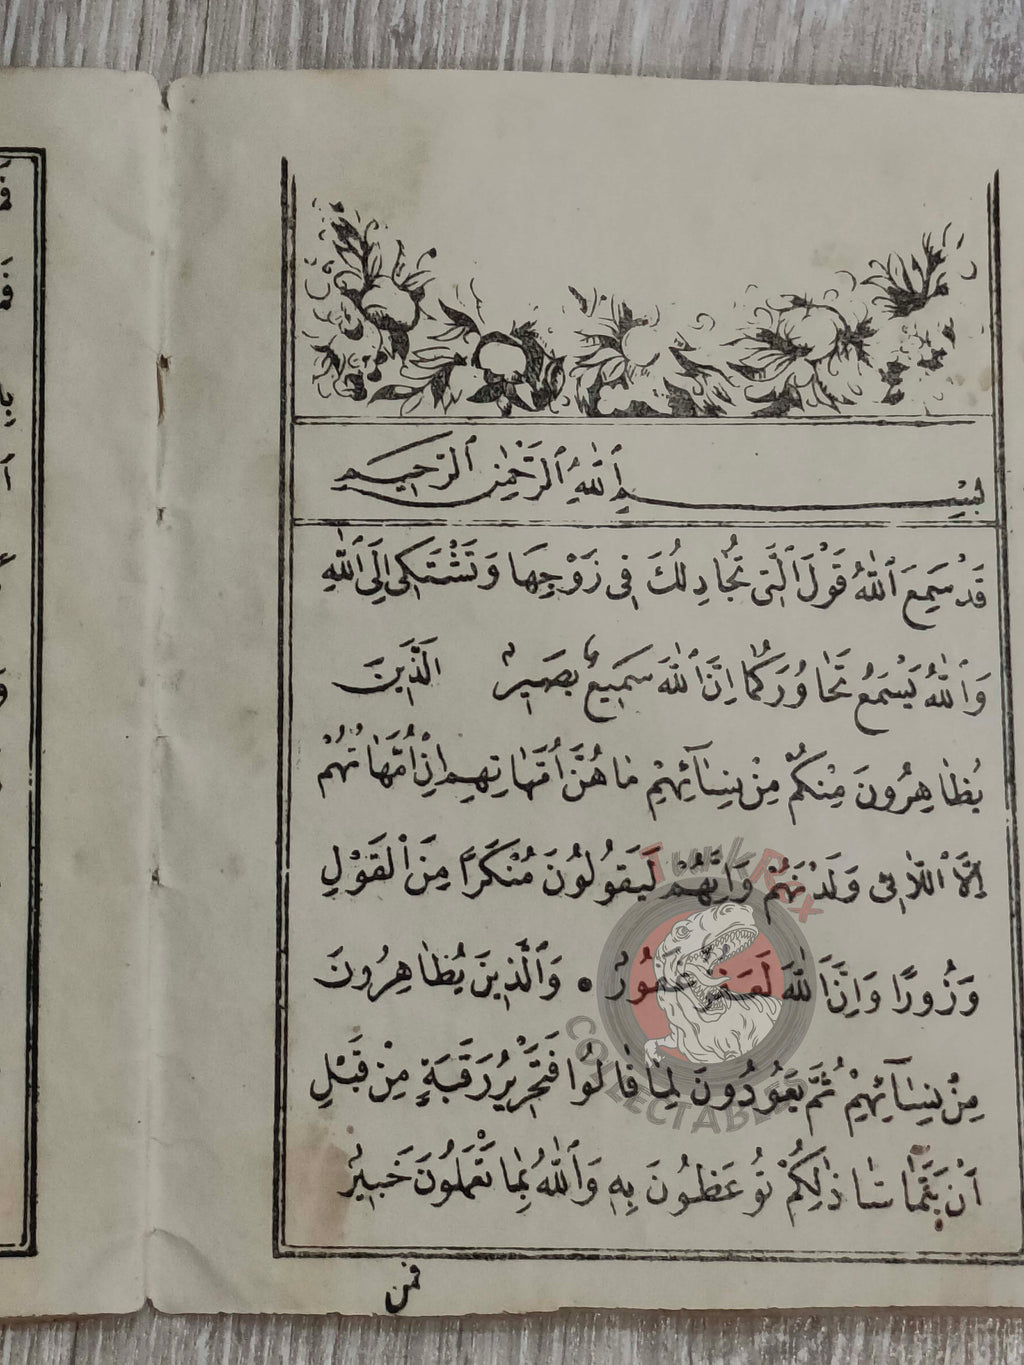 بِسْمِ ٱللّٰهِ ٱلرَّحْمٰنِ ٱلرَّحِيمِ
قَدْ سَمِعَ ٱللّٰهُ قَوْلَ ٱلَّتِى تُجَادِلُكَ فِى زَوْجِهَا وَتَشْتَكِى اِلَى ٱللّٰهِ
وَٱللّٰهُ يَسْمَعُ تَحَاوُرَكُمَا اِنَّ ٱللّٰهَ سَمِيعٌ بَصِيرٌ اَلَّذِينَ
يُظَاهِرُونَ مِنْكُمْ مِنْ نِسَآئِهِمْ مَا هُنَّ اُمَّهَاتِهِمْ اِنْ اُمَّهَاتُهُمْ
اِلَّا ٱللَّائِى وَلَدْنَهُمْ وَاِنَّهُمْ لَيَقُولُونَ مُنْكَرًا مِنَ ٱلْقَوْلِ
وَزُورًا وَاِنَّ ٱللّٰهَ لَعَفُوٌّ غَفُورٌ • وَٱلَّذِينَ يُظَاهِرُونَ
مِنْ نِسَآئِهِمْ ثُمَّ يَعُودُونَ لِمَا قَالُوا فَتَحْرِيرُ رَقَبَةٍ مِنْ قَبْلِ
اَنْ يَتَمَاسَّا ذٰلِكُمْ تُوعَظُونَ بِهِ وَٱللّٰهُ بِمَا تَعْمَلُونَ خَبِيرٌ
فمن
TurkRex
COLLECTABLES